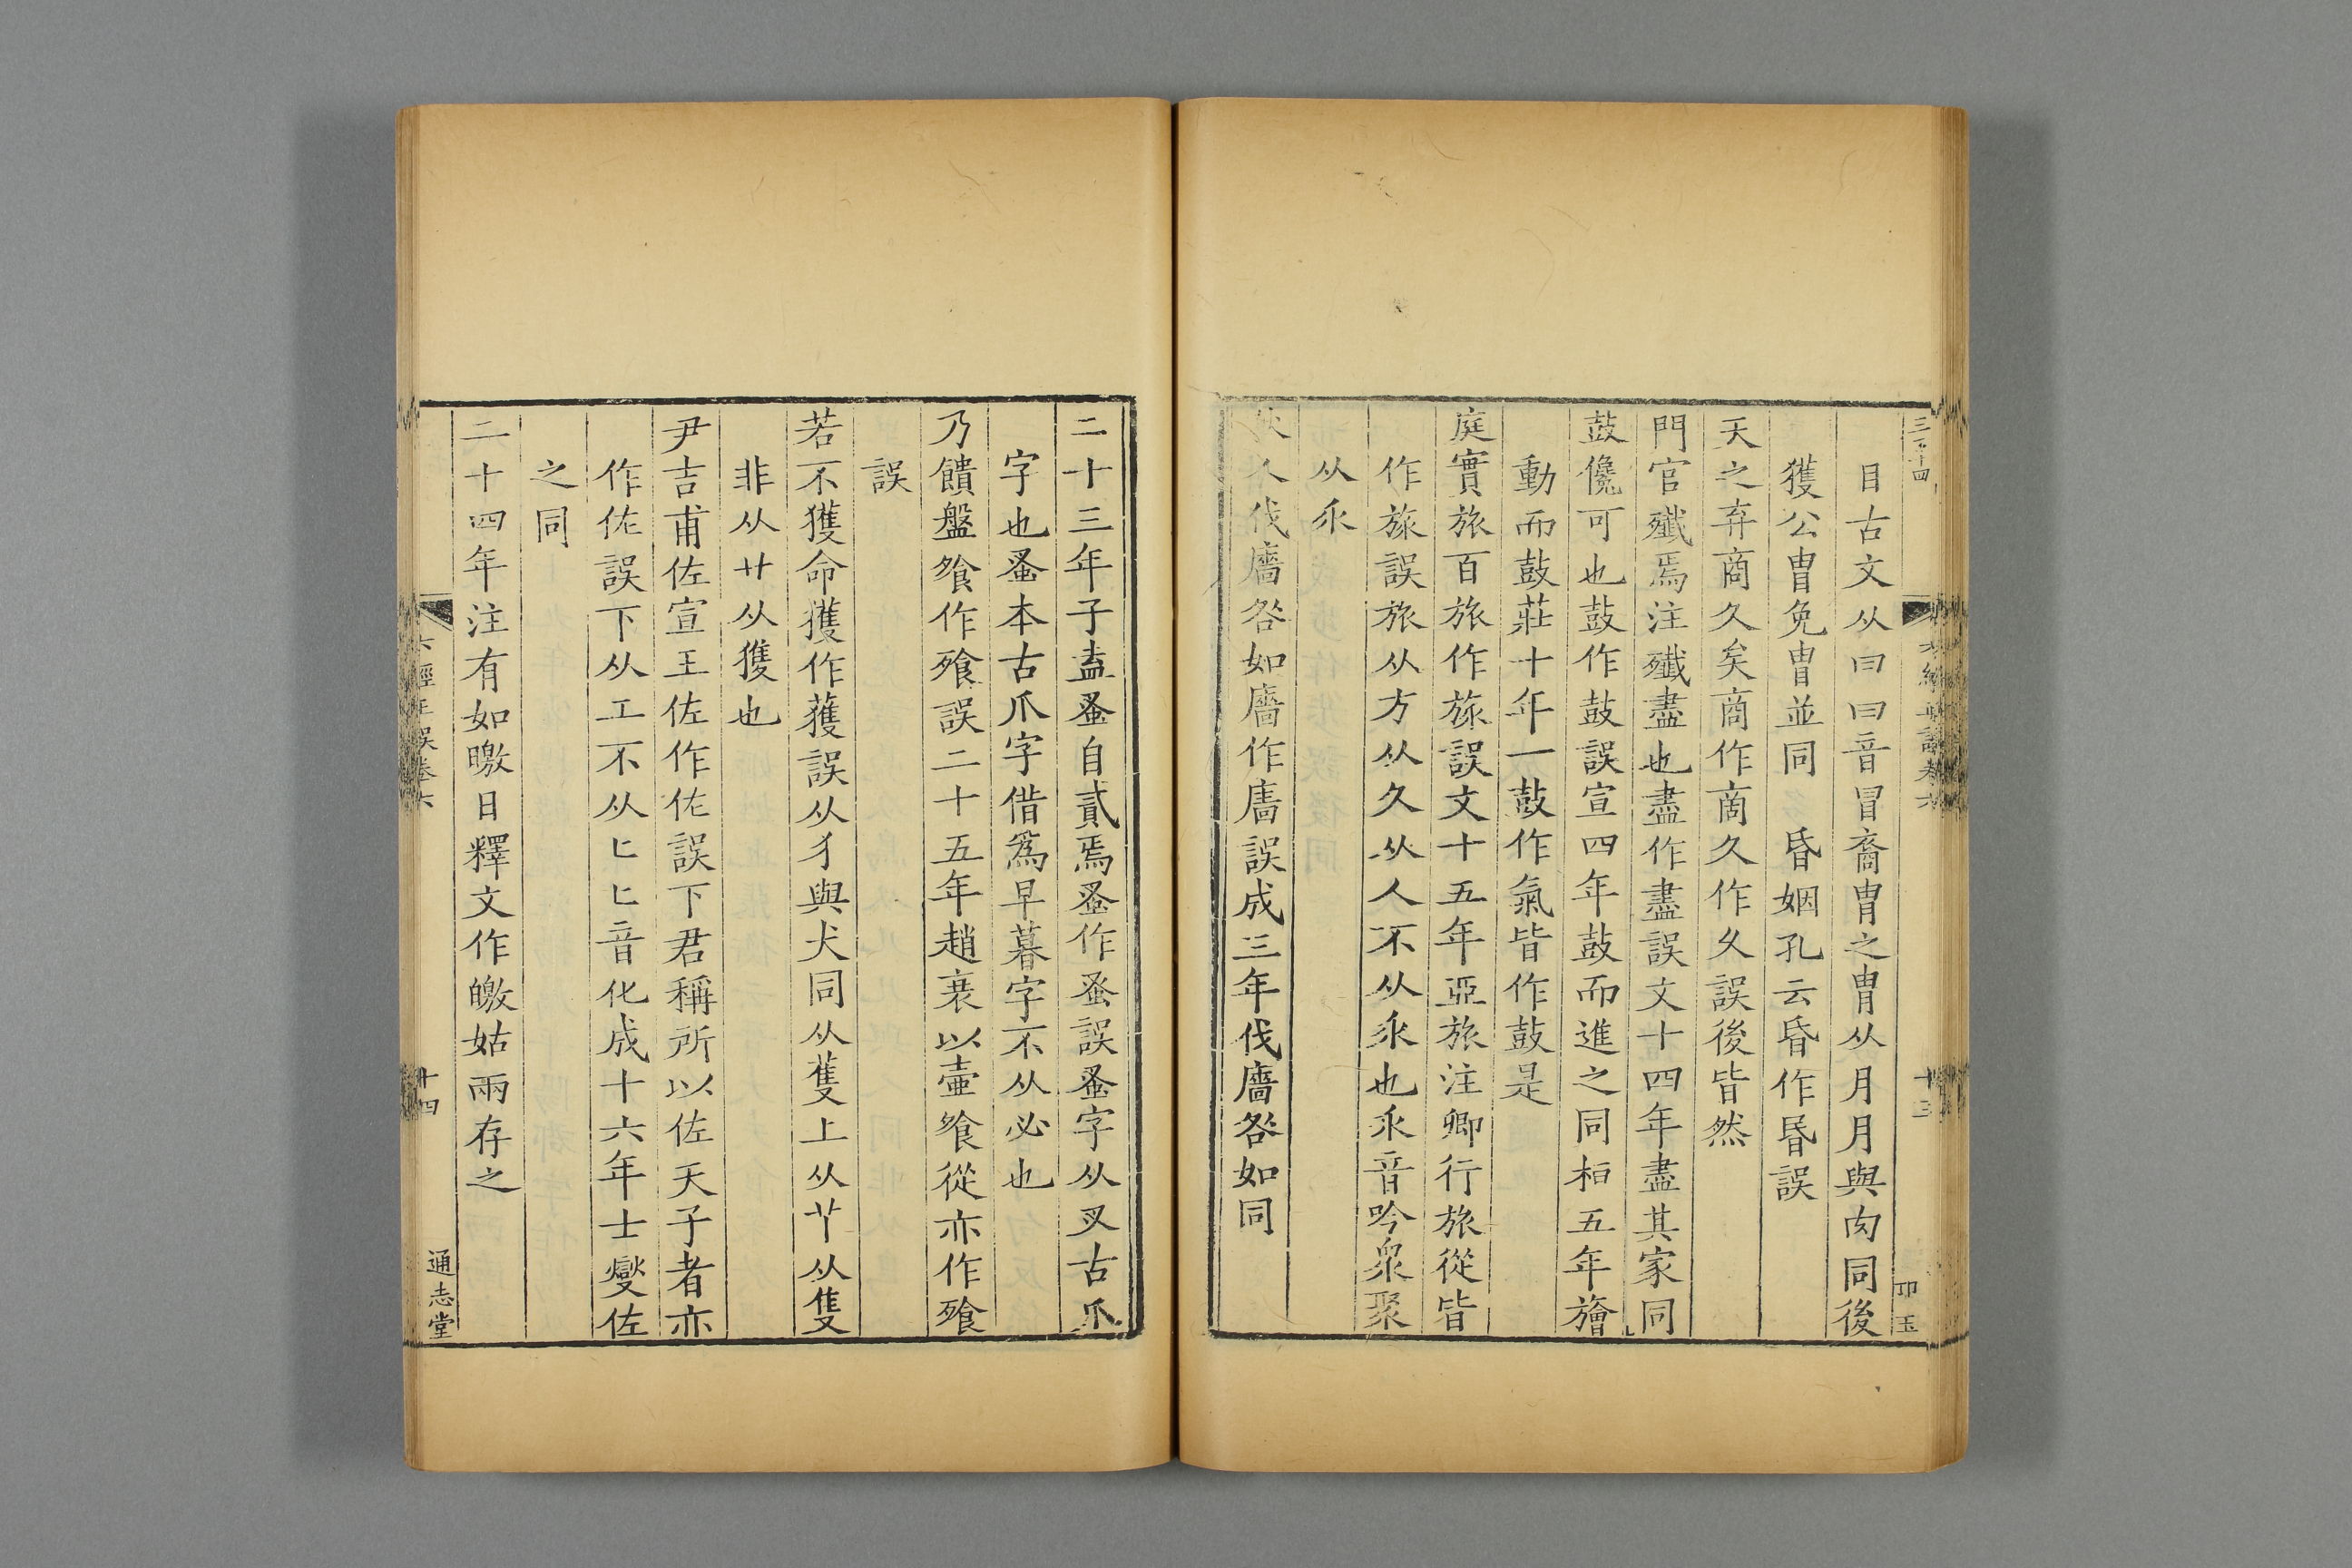 目古文从曰曰音冒裔胄之胄从月月與肉同後
獲公胄免胄並同　昏姻孔云昏作昬誤
天之弃商久矣商作啇久作夂誤後皆然
門官殱焉注殱盡也盡作盡誤文十四年盡其家同
鼓儳可也鼓作鼔誤宣四年鼓而進之同桓五年旝
動而鼓莊十年一鼓作氣皆作鼓是
庭實旅百旅作旅誤文十五年亞旅注卿行旅從皆
作旅誤旅从方从久从人不从乑也乑音吟衆聚
从乑
人伐廧咎如廧作廥誤成三年伐廧咎如同
二十三年子盍蚤自貳焉蚤作蚤誤蚤字从叉古爪
字也蚤本古爪字借爲早暮字不从必也
乃饋盤飧作飱誤二十五年趙衰以壷飧從亦作飱
誤
若不獲命獲作獲誤从犭與犬同从蒦上从艹从隻
非从廾从獲也
尹吉甫佐宣王佐作佐誤下君稱所以佐天子者亦
作佐誤下从工不从匕匕音化成十六年士燮佐
之同
二十四年注有如曒日釋文作皦姑兩存之
六經正誤卷六
十四
通志堂